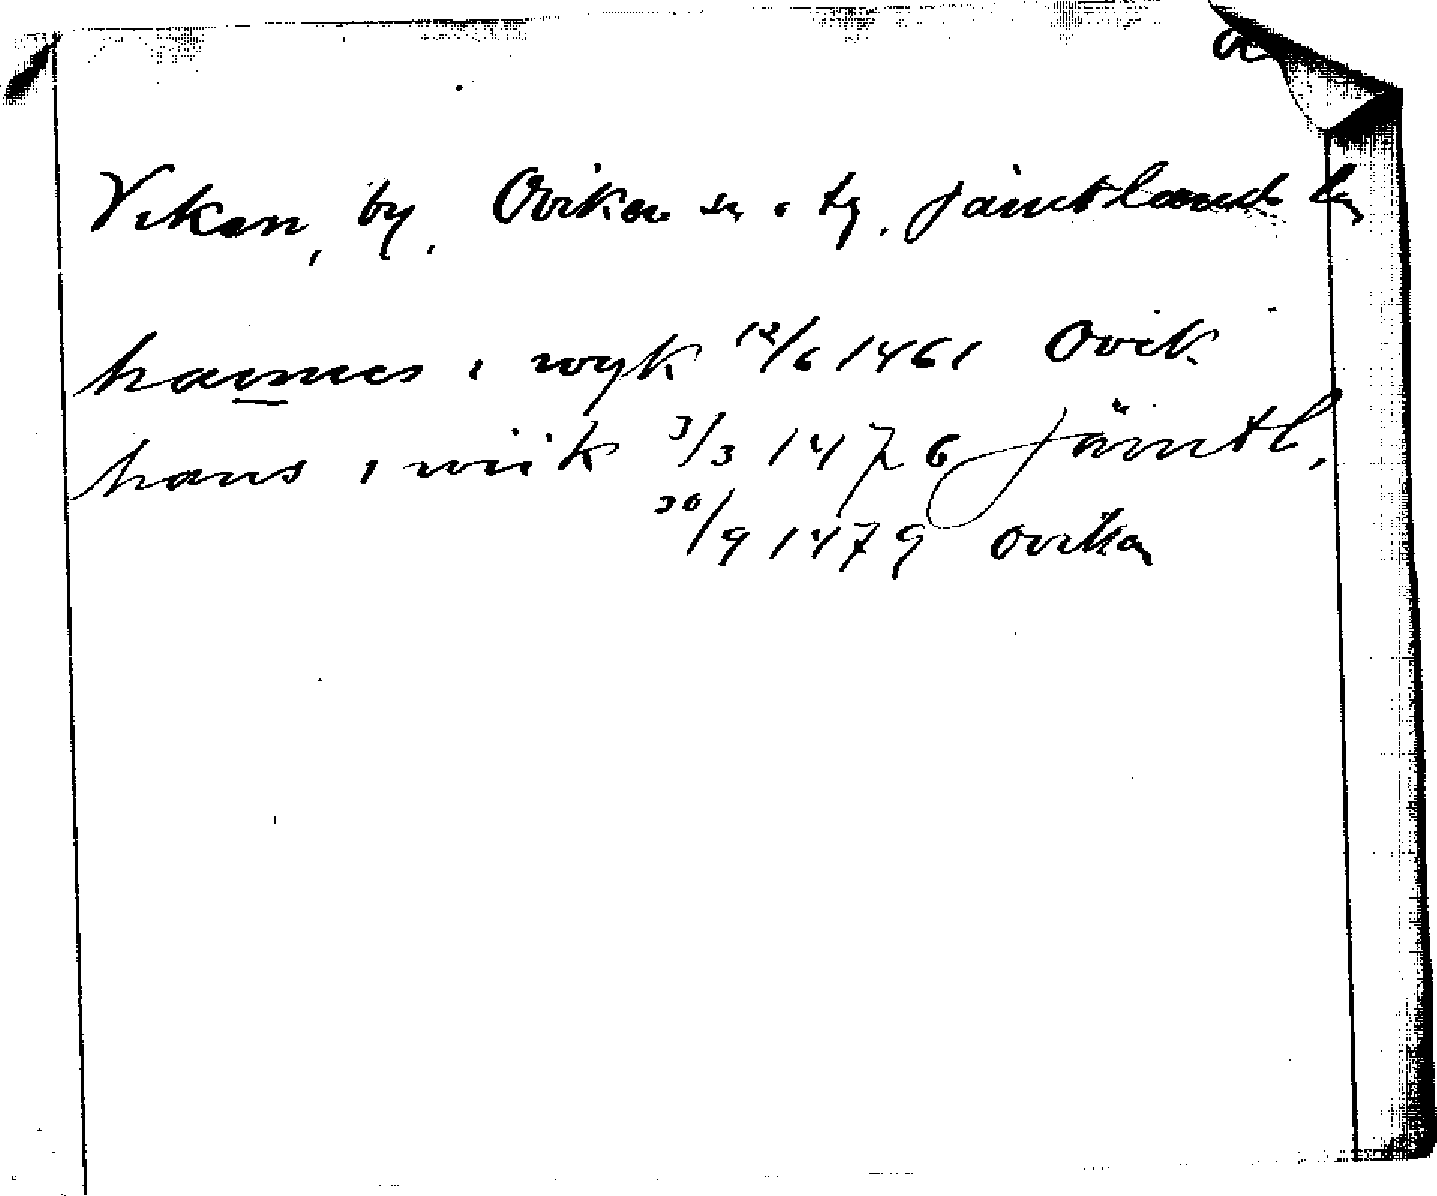 Viken, by, Ovikens sn o tg, Jämtlands län
hannes i wyk 12/6 1461 Ovik
hans i wiik 3/3 1476 Jämtl,
30/9 1479 Ovikn